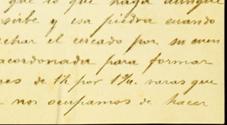 que lo que haya aunque
sirbe y esa piedra cuando
echar el cercado por su cuen
acordonada para formar
res de 1½ por 1¼ varas que
nos ocupamos de hacer